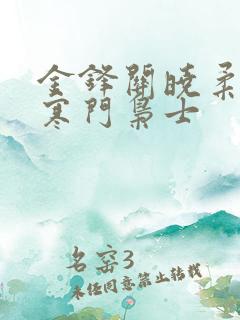 金锋關曉柔
寒門梟士
名窑3
未经同意禁止转载